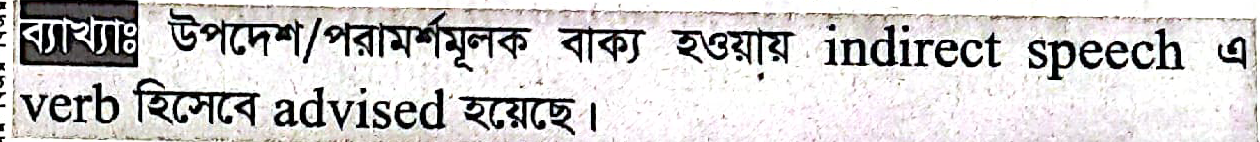 ব্যাখ্যাঃ উপদেশ/পরামর্শমূলক বাক্য হওয়ায় indirect speech এ
verb হিসেবে advised হয়েছে।